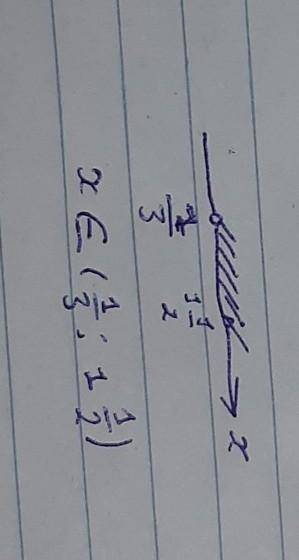 x
1/3 1 1/2
x ∈ (1/3; 1 1/2)